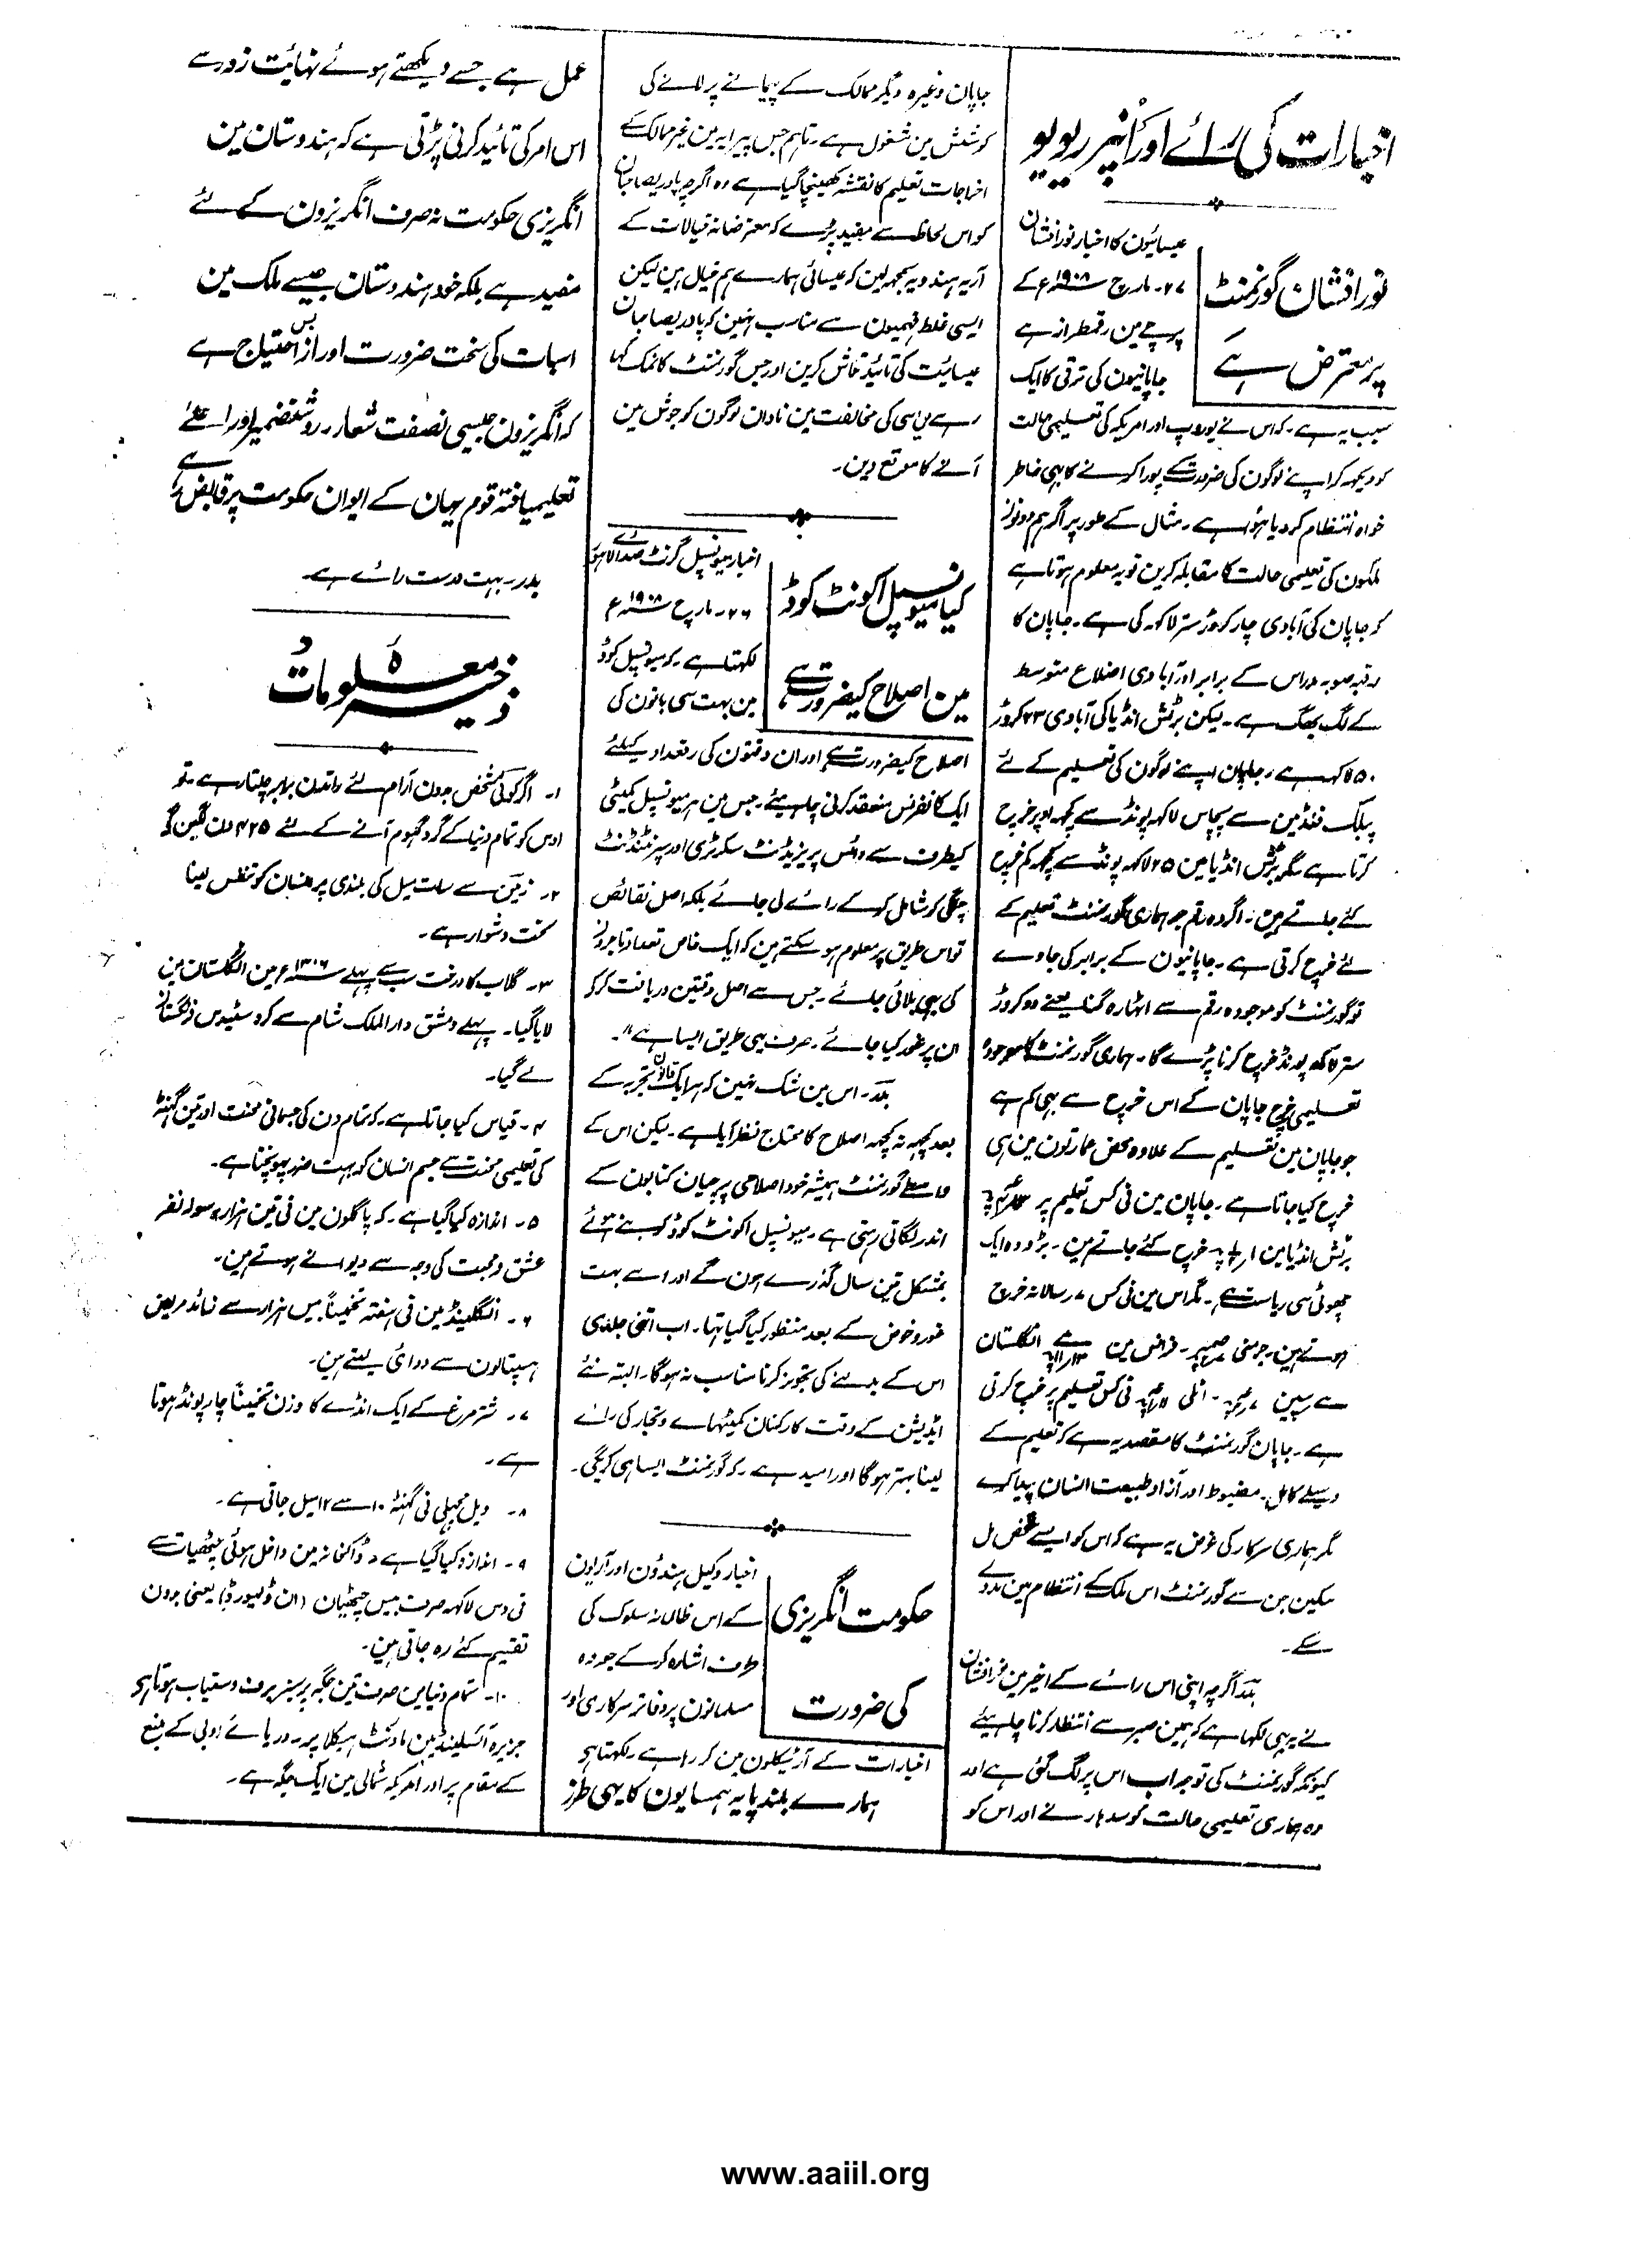 اخبارات کی رائے اور انپر ریویو
نور افشان گورنمنٹ
پر معترض ہے
عیسائیون کا اخبار نور افشان
۲۷۔ مارچ ۱۹۰۸ء کے
پرچے مین رقمطراز ہے
جاپانیون کی ترقی کا ایک
سبب یہ ہے۔ کہ اس نے یوروپ اور امریکہ کی تعلیمی حالت
کو دیکھ کر اپنے لوگون کی ضرورت کے پورا کرنے کا بہی خاطر
خواہ انتظام کر دیا ہوا ہے۔ مثال کے طور پر اگر ہم دونون
ملکون کی تعلیمی حالت کا مقابلہ کرین تو یہ معلوم ہوتا ہے
کہ جاپان کی آبادی چار کروڑ ستر لاکھ کی ہے۔ جاپان کا
رقبہ صوبہ مدراس کے برابر اور آبادی اضلاع متوسط
کے لگ بھگ ہے۔ لیکن برٹش انڈیا کی آبادی ۲۳ کروڑ
۵۰ لاکہہ ہے۔ جاپان اپنے لوگون کی تعلیم کے لئے
پبلک فنڈ مین سے پچاس لاکہہ پونڈ سے کچہہ اوپر خرچ
کرتا ہے مگر برٹش انڈیا مین ۲۵ لاکہہ پونڈ سے کچہہ کم خرچ
کئے جاتے ہین۔ اگر وہ رقم جو ہماری گورنمنٹ تعلیم کے
لئے خرچ کرتی ہے۔ جاپانیون کے برابر کی جاوے
تو گورنمنٹ کو موجودہ رقم سے اٹھارہ گنا یعنے دو کروڑ
ستر لاکھ پونڈ خرچ کرنا پڑے گا۔ ہماری گورنمنٹ کا موجودہ
تعلیمی خرچ جاپان کے اس خرچ سے بہی کم ہے
جو جاپان مین تعلیم کے علاوہ محض عمارتون مین ہی
خرچ کیا جاتا ہے۔ جاپان مین فی کس تعلیم پر
برٹش انڈیا مین خرچ کئے جاتے ہین۔ بڑودہ ایک
چھوٹی سی ریاست ہے۔ مگر اس مین فی کس ۷ر سالانہ خرچ
ہوتے ہین۔ جرمنی فرانس مین انگلستان
سے سپین اٹلی فی کس تعلیم پر خرچ کرتی
ہے۔ جاپان گورنمنٹ کا مقصد یہ ہے کہ تعلیم کے
وسیلے کامل۔ مضبوط اور آزاد طبیعت انسان پیدا کرے
مگر ہماری سرکار کی غرض یہ ہے کہ اس کو ایسے شخص مل
سکین جن سے گورنمنٹ اس ملک کے انتظام مین مدد لے
سکے۔
بدر اگرچہ اپنی اس رائے کے اخیر مین نور افشان
نے یہ بہی لکھا ہے کہ ہمین صبر سے انتظار کرنا چاہیئے
کیونکہ گورنمنٹ کی توجہ اب اس پر لگ گئی ہے اور
وہ ہماری تعلیمی حالت کو سدہارنے اور اس کو
جاپان وغیرہ دیگر ممالک کے پیمانے پر لانے کی
کوشش مین مشغول ہے۔ تاہم جس پیرایہ مین غیر ممالک کے
اخراجات تعلیم کا نقشہ کھینچا گیا ہے وہ اگرچہ پادریصاحبان
کو اس لحاظ سے مفید پڑے کہ معترضانہ خیالات کے
آریہ ہندو یہ سمجہہ لین کہ عیسائی ہمارے ہم خیال ہین لیکن
ایسی غلط فہمیون سے مناسب نہین کہ پادریصاحبان
عیسائیت کی تائید تلاش کرین اور جس گورنمنٹ کا نمک کہا
رہے ہین اسی کی مخالفت مین نادان لوگون کو جوش مین
آنے کا موقع دین۔
کیا میونسپل اکونٹ کوڈ
مین اصلاح کیضرورت ہے
اخبار میونسپل گزٹ صدائے لاہور
۲۶۔ مارچ ۱۹۰۸ء
لکھتا ہے۔ کہ میونسپل کوڈ
مین بہت سی باتون کی
اصلاح کیضرورت ہے اور ان دقتون کی رفعداد کیلئے
ایک کانفرنس منعقد کرنی چاہیئے۔ جس مین ہر میونسپل کمیٹی
کیطرف سے وائس پریزیڈنٹ سکرٹری اور سپرنٹنڈنٹ
چنگی کو شامل کر کے رائے لی جائے بلکہ اصل نقائص
تو اس طریق پر معلوم ہو سکتے ہین کہ ایک خاص تعداد تاجرون
کی بہی بلائی جائے۔ جس سے اصل دقتین دریافت کر کر
ان پر غور کیا جائے۔ صرف یہی طریق ایسا ہے"۔
بدر۔ اس مین شک نہین کہ ہر ایک قانون تجربہ کے
بعد کچہہ نہ کچہہ اصلاح کا محتاج نظر آیا ہے۔ لیکن اس کے
واسطے گورنمنٹ ہمیشہ خود اصلاحی پرچیان کتابون کے
اندر لگاتی رہتی ہے۔ میونسپل اکونٹ کوڈ کو بنے ہوئے
بمشکل تین سال گذرے ہون گے اور اسے بہت
غور و خوض کے بعد منظور کیا گیا تہا۔ اب اتنی جلدی
اس کے بدلنے کی تجویز کرنا مناسب نہ ہوگا۔ البتہ نئے
ایڈیشن کے وقت کارکنان کمیٹیہائے و تجار کی رائے
لینا بہتر ہوگا اور امید ہے۔ کہ گورنمنٹ ایسا ہی کریگی۔
حکومت انگریزی
کی ضرورت
اخبار وکیل ہندوُن اور آریون
کے اس ظالمانہ سلوک کی
طرف اشارہ کر کے جو وہ
مسلمانون پر دفاتر سرکاری اور
اخبارات کے آرٹیکلون مین کر رہا ہے۔ لکھتا ہے
ہمارے بلند پایہ ہمسایون کا یہی طرز
عمل ہے جسے دیکھتے ہوئے نہائت زور سے
اس امر کی تائید کرنی پڑتی ہے کہ ہندوستان مین
انگریزی حکومت نہ صرف انگریزون کے لئے
مفید ہے بلکہ خود ہندوستان جیسے ملک مین
اسبات کی سخت ضرورت اور از بس احتیاج ہے
کہ انگریزون جیسی نصفت شعار۔ روشنضمیر اور اعلےٰ
تعلیمیافتہ قوم یہان کے ایوان حکومت پر قابض رہے
بدر۔ بہت درست رائے ہے۔
ذخیرہٴ معلومات
۱۔ اگر کوئی شخص بدون آرام لئے راتدن برابر چلتا رہے۔ تو
اوس کو تمام دنیا کے گرد گھوم آنے کے لئے ۴۲۵ دن لگین گے
۲۔ زمین سے سات میل کی بلندی پر انسان کو تنفس لینا
سخت دشوار ہے۔
۳۔ گلاب کا درخت سب سے پہلے ۱۳۰۶ء مین انگلستان مین
لایا گیا۔ پہلے دمشق دارالملک شام سے کروسیڈس فرنگستان
لے گیا۔
۴۔ قیاس کیا جاتا ہے۔ کہ تمام دن کی جسمانی محنت اور تین گھنٹہ
کی تعلیمی محنت سے جسم انسان کو بہت ضرر پہونچتا ہے۔
۵۔ اندازہ کیا گیا ہے۔ کہ پاگلون مین فی تین ہزار سولہ نفر
عشق و محبت کی وجہ سے دیوانے ہوتے ہین۔
۶۔ انگلینڈ مین فی ہفتہ تخمیناً بیس ہزار سے زائد مریض
ہسپتالون سے دوائی لیتے ہین۔
۷۔ شتر مرغ کے ایک انڈے کا وزن تخمیناً چار پونڈ ہوتا
ہے۔
۸۔ ویل مچہلی فی گھنٹہ ۱۰ سے ۱۲ میل جاتی ہے۔
۹۔ اندازہ کیا گیا ہے کہ ڈاکخانہ مین داخل ہوئی چٹھیات سے
فی دس لاکہہ صرف بیس چٹھیان (ان ڈلیورڈ) یعنی بدون
تقسیم کئے رہ جاتی ہین۔
۱۰۔ تمام دنیا مین صرف تین جگہ پر سبز برف دستیاب ہوتا ہے
جزیرہ آئسلینڈ مین ماونٹ ہیکلا پر۔ دریائے اوبی کے منبع
کے مقام پر اور امریکہ شمالی مین ایک جگہ ہے۔
www.aaiil.org